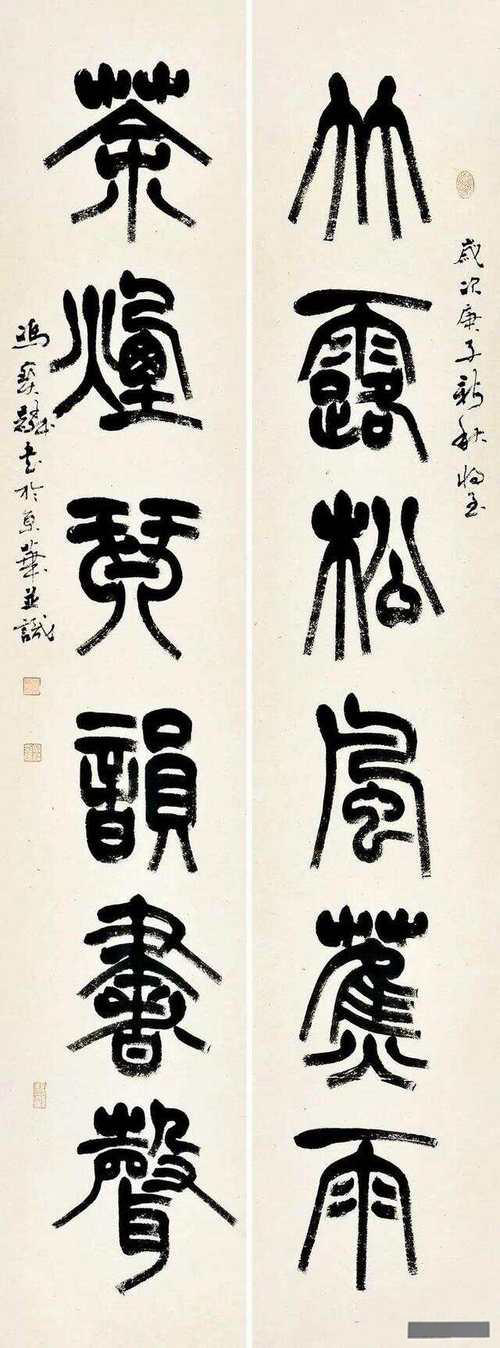 竹露松風蕉雨
茶煙琴韻書聲
歲次庚子新秋將至
馮寶麟書於京華並識